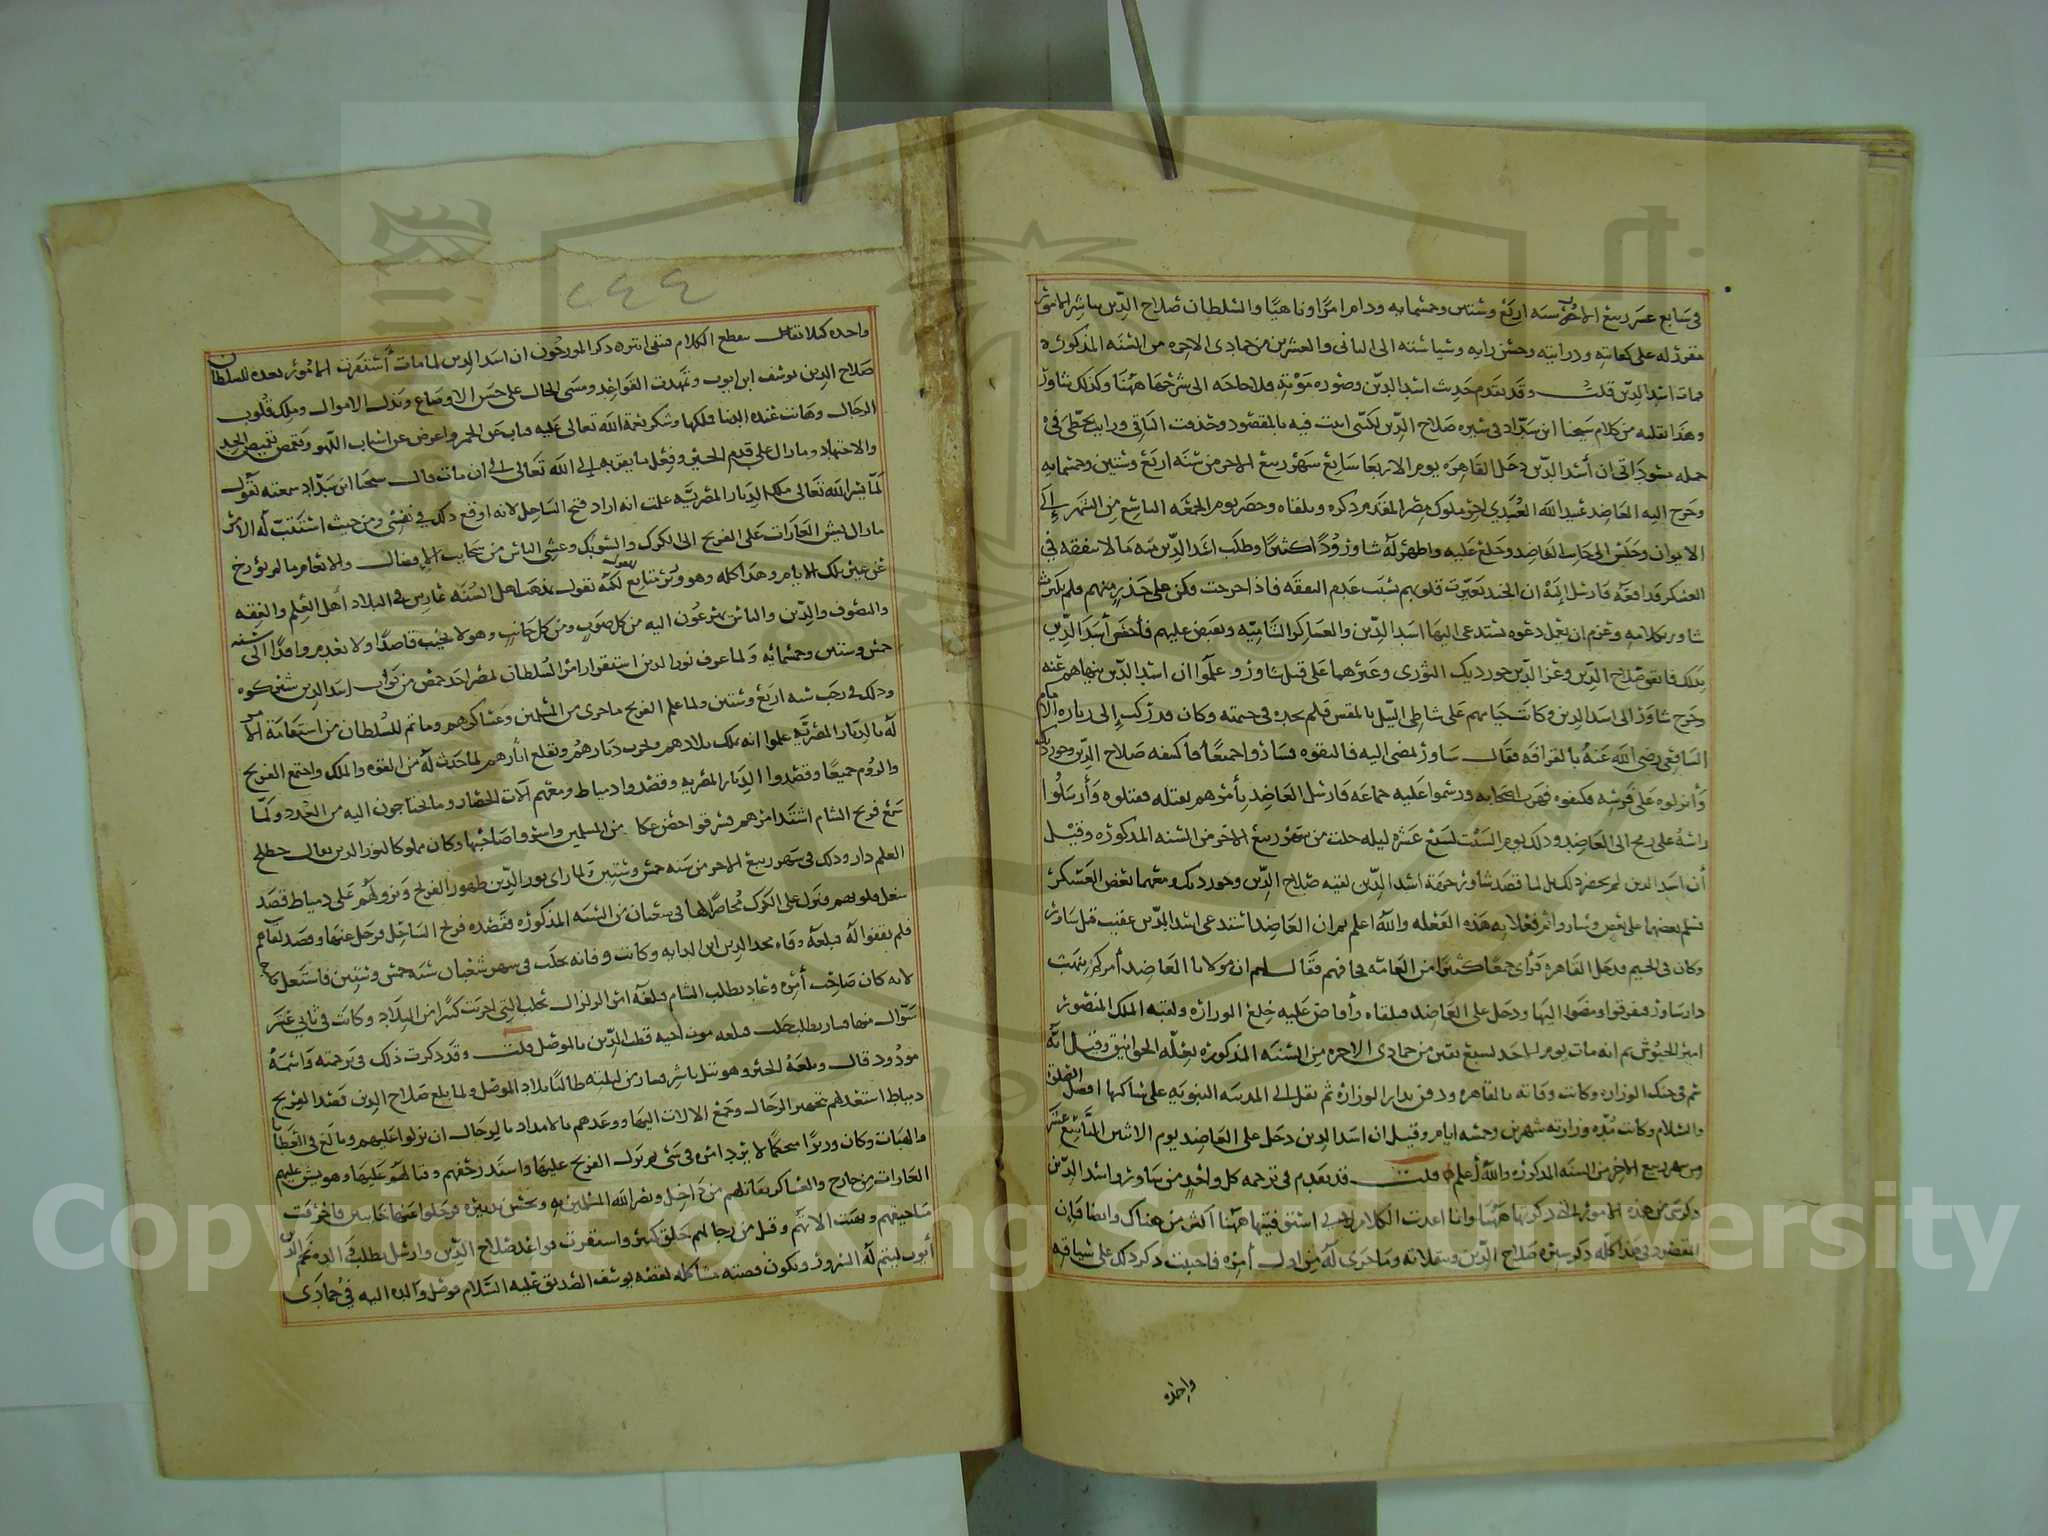 في سابع عشر ربيع الاخر سنه اربع وستين وخمسمايه ودام امرا وناهيا والسلطان صلاح الدين يباشر الامور
مقررا له على كفايته ودرايته وحسن رايه وسياسته الى الثاني والعشرين من جمادى الاخره من السنه المذكوره
فمات اسد الدين قلت وقد تقدم حديث اسد الدين وصوره موته فلا حاجه الى شرحها ههنا وكذلك شاور
وهذا نقلته من كلام شيخنا ابن شداد في سيره صلاح الدين لكنني اتيت فيه بالمقصود وحذفت الباقي ورايت بخطي في
جمله مسوداتي ان أسد الدين دخل القاهره يوم الاربعا سابع شهر ربيع الاخر من سنه اربع وستين وخمسمايه
وخرج اليه العاضد عبد الله العبيدي اخر ملوك مصر المقدم ذكره وتلقاه وحضر يوم الجمعه التاسع من الشهر إلى
الايوان وجلس الى جانب العاضد وخلع عليه واظهر له شاور ودا كثيرا وطلب اسد الدين منه مالا ينفقه في
العسكر فدافعه فارسل إليه ان الجند تغيرت قلوبهم بسبب عدم النفقه فاذا خرجت فكن على حذر منهم فلم يكترث
شاور بكلامه وعزم ان يعمل دعوه يستدعي اليها اسد الدين والعساكر الشاميه ويقبض عليهم فأحس أسد الدين
بذلك فاتفق صلاح الدين وعز الدين جورديك النوري وغيرهما على قتل شاور وعلموا اسد الدين بنهاهم عنه
وخرج شاور الى اسد الدين وكانت خيامهم على شاطي النيل بالمقس فلم يجده في خيمته وكان قد ركب إلى زياره الامام
الشافعي رضي الله عنه بالقرافه فقال شاور نمضي اليه فالتقوه فساروا جميعا فاكتنفه صلاح الدين وجورديك
وأنزلوه على فرسه فكتفوه فهرب اصحابه ورسموا عليه جماعه فارسل العاضد يأمرهم بقتله فقتلوه وأرسلوا
راسه على رمح الى العاضد وذلك يوم السبت لسبع عشره ليله خلت من شهر ربيع الاخر من السنه المذكوره وقيل
أن اسد الدين لم يحضر ذلك بل لما قصد شاور جهة اسد الدين لقيه صلاح الدين وجورديك ومعهما بعض العسكر
فسلم بعضهما على بعض وساروا ثم فعلا به هذه الفعله والله اعلم ثم ان العاضد استدعى اسد الدين عقيب قتل شاور
وكان في الخيم فدخل القاهره فرأى جمعا كثيرا من العامه فخافهم فقال لهم ان مولانا العاضد أمركم بنهب
دار شاور فتفرقوا ومضوا اليها ودخل على العاضد فتلقاه وأفاض عليه خلع الوزاره ولقبه الملك المنصور
امير الجيوش ثم انه مات يوم الاحد لسبع بقين من جمادى الاخره من السنه المذكوره بعله الخوانيق وقيل انه
سم في حنك الوزاره وكانت وفاته بالقاهره ودفن بدار الوزاره ثم نقل الى المدينه النبويه على ساكنها افضل الصلاه
والسلام وكانت مده وزارته شهرين وخمسه ايام وقيل ان اسد الدين دخل على العاضد يوم الاثنين التاسع عشر
من شهر ربيع الاخر من السنه المذكوره والله أعلم قلت قد تقدم في ترجمه كل واحد من شاور واسد الدين
ذكر شي من هذه الامور التي ذكرتها ههنا وانا اعدت الكلام لاني استوفيتها ههنا اكثر من هناك وايضا فإن
المقصود في هذا كله ذكر سيره صلاح الدين وتنقلاته وما جرى له من اول أمره فاحببت ذكر ذلك على سياقه
واحده
٤٤٦
واحده كيلا ينقطع الكلام فنقى ابتر ذكر المورخون ان اسد الدين لما مات أستقرت الامور بعده للسلطان
صلاح الدين يوسف ابن ايوب وتمهدت القواعد ومشى الحال على حسن الاوضاع وبذل الاموال وملك قلوب
الرجال وهانت عنده الدنيا فملكها وشكر نعمة الله تعالى عليه فتاب عن الخمر واعرض عن اسباب اللهو وتقمص بقميص الجد
والاجتهاد وما زال على قدم الخير وفعل ما يقربه إلى الله تعالى إلى ان مات قال شيخنا ابن شداد سمعته يقول
لما يسر الله تعالى ملك الديار المصريه علمت انه اراد فتح الساحل لانه اوقع ذلك في نفسي ومن حيث استتب له الامر
ما زال يشن الغارات على الفرنج الى الكرك والشوبك وغشى الناس من سحايب الافضال والانعام ما لم يورخ
عن غير تلك الايام وهذا كله وهو وزير متابع لكنه يقول بمذهب اهل السنه غارس في البلاد اهل العلم والفقه
والتصوف والدين والناس يهرعون اليه من كل صوب ومن كل جانب وهو لا يخيب قاصدا ولا يعدم وافدا الى سنه
خمس وستين وخمسمائه ولما عرف نور الدين استقرار امر السلطان بمصر اخذ حمص من نواب اسد الدين شيركوه
وذلك في رجب سنه اربع وستين ولما علم الفرنج ما جرى من المسلمين وعساكرهم وما تم للسلطان من استقامة الامر
له بالديار المصريه علموا انه يملك بلادهم ويخرب ديارهم ويقلع اثارهم لما حدث له من القوه والملك واجتمع الفرنج
والروم جميعا وقصدوا الديار المصريه وقصدوا دمياط ومعهم آلات الحصار وما يحتاجون اليه من العدد ولما
سمع فرنج الشام اشتد امرهم فسرقوا حصن عكا من المسلمين واسروا صاحبها وكان مملوكا لنور الدين يقال خطلخ
العلم دار وذلك في شهر ربيع الاخر من سنه خمس وستين ولما راى نور الدين ظهور الفرنج ونزولهم على دمياط قصد
شغل قلوبهم فنزل على الكرك محاصرا لها في شعبان من السنه المذكوره فقصده فرنج الساحل فرحل عنها وقصد لقاءهم
فلم يقفوا له فبلغه وفاه مجد الدين ابن الدايه وكانت وفاته بحلب في شهر شعبان سنه خمس وستين فاشتغل قلبه
لانه كان صاحب أمره وعاد يطلب الشام فبلغه امر الزلزال بحلب التي اخربت كثيرا من البلاد وكانت في ثاني عشر
شوال منها فسار يطلب حلب فبلغه موت اخيه قطب الدين بالموصل قلت وقد ذكرت ذلك في ترجمته واسمه
مودود قال وبلغه الخبر وهو بتل باشر فسار من ليلته طالبا بلاد الموصل ولما بلغ صلاح الدين قصد الفرنج
دمياط استعد لهم بتجهيز الرجال وجمع الالات اليها ووعدهم بالامداد بالرجال ان نزلوا عليهم وبالغ في العطايا
والهبات وكان وزيرا متحكما لا يرد امره في شي ثم نزل الفرنج عليها واشتد زحفهم وقتالهم عليها وهو يشن عليهم
الغارات من خارج والعساكر يقاتلهم من داخل ونصر الله المسلمين به وبحسن تدبيره فرحلوا عنها خايبين فاحرقت
مناجيقهم ونهبت الاتهم وقتل من رجالهم خلق كثير واستقرت قواعد صلاح الدين وارسل يطلب والده نجم الدين
أيوب ليتم له السرور وتكون قصته مشاكله لقصه يوسف الصديق عليه السلام فوصل والده اليه في جمادى
Copyright © King Saud University